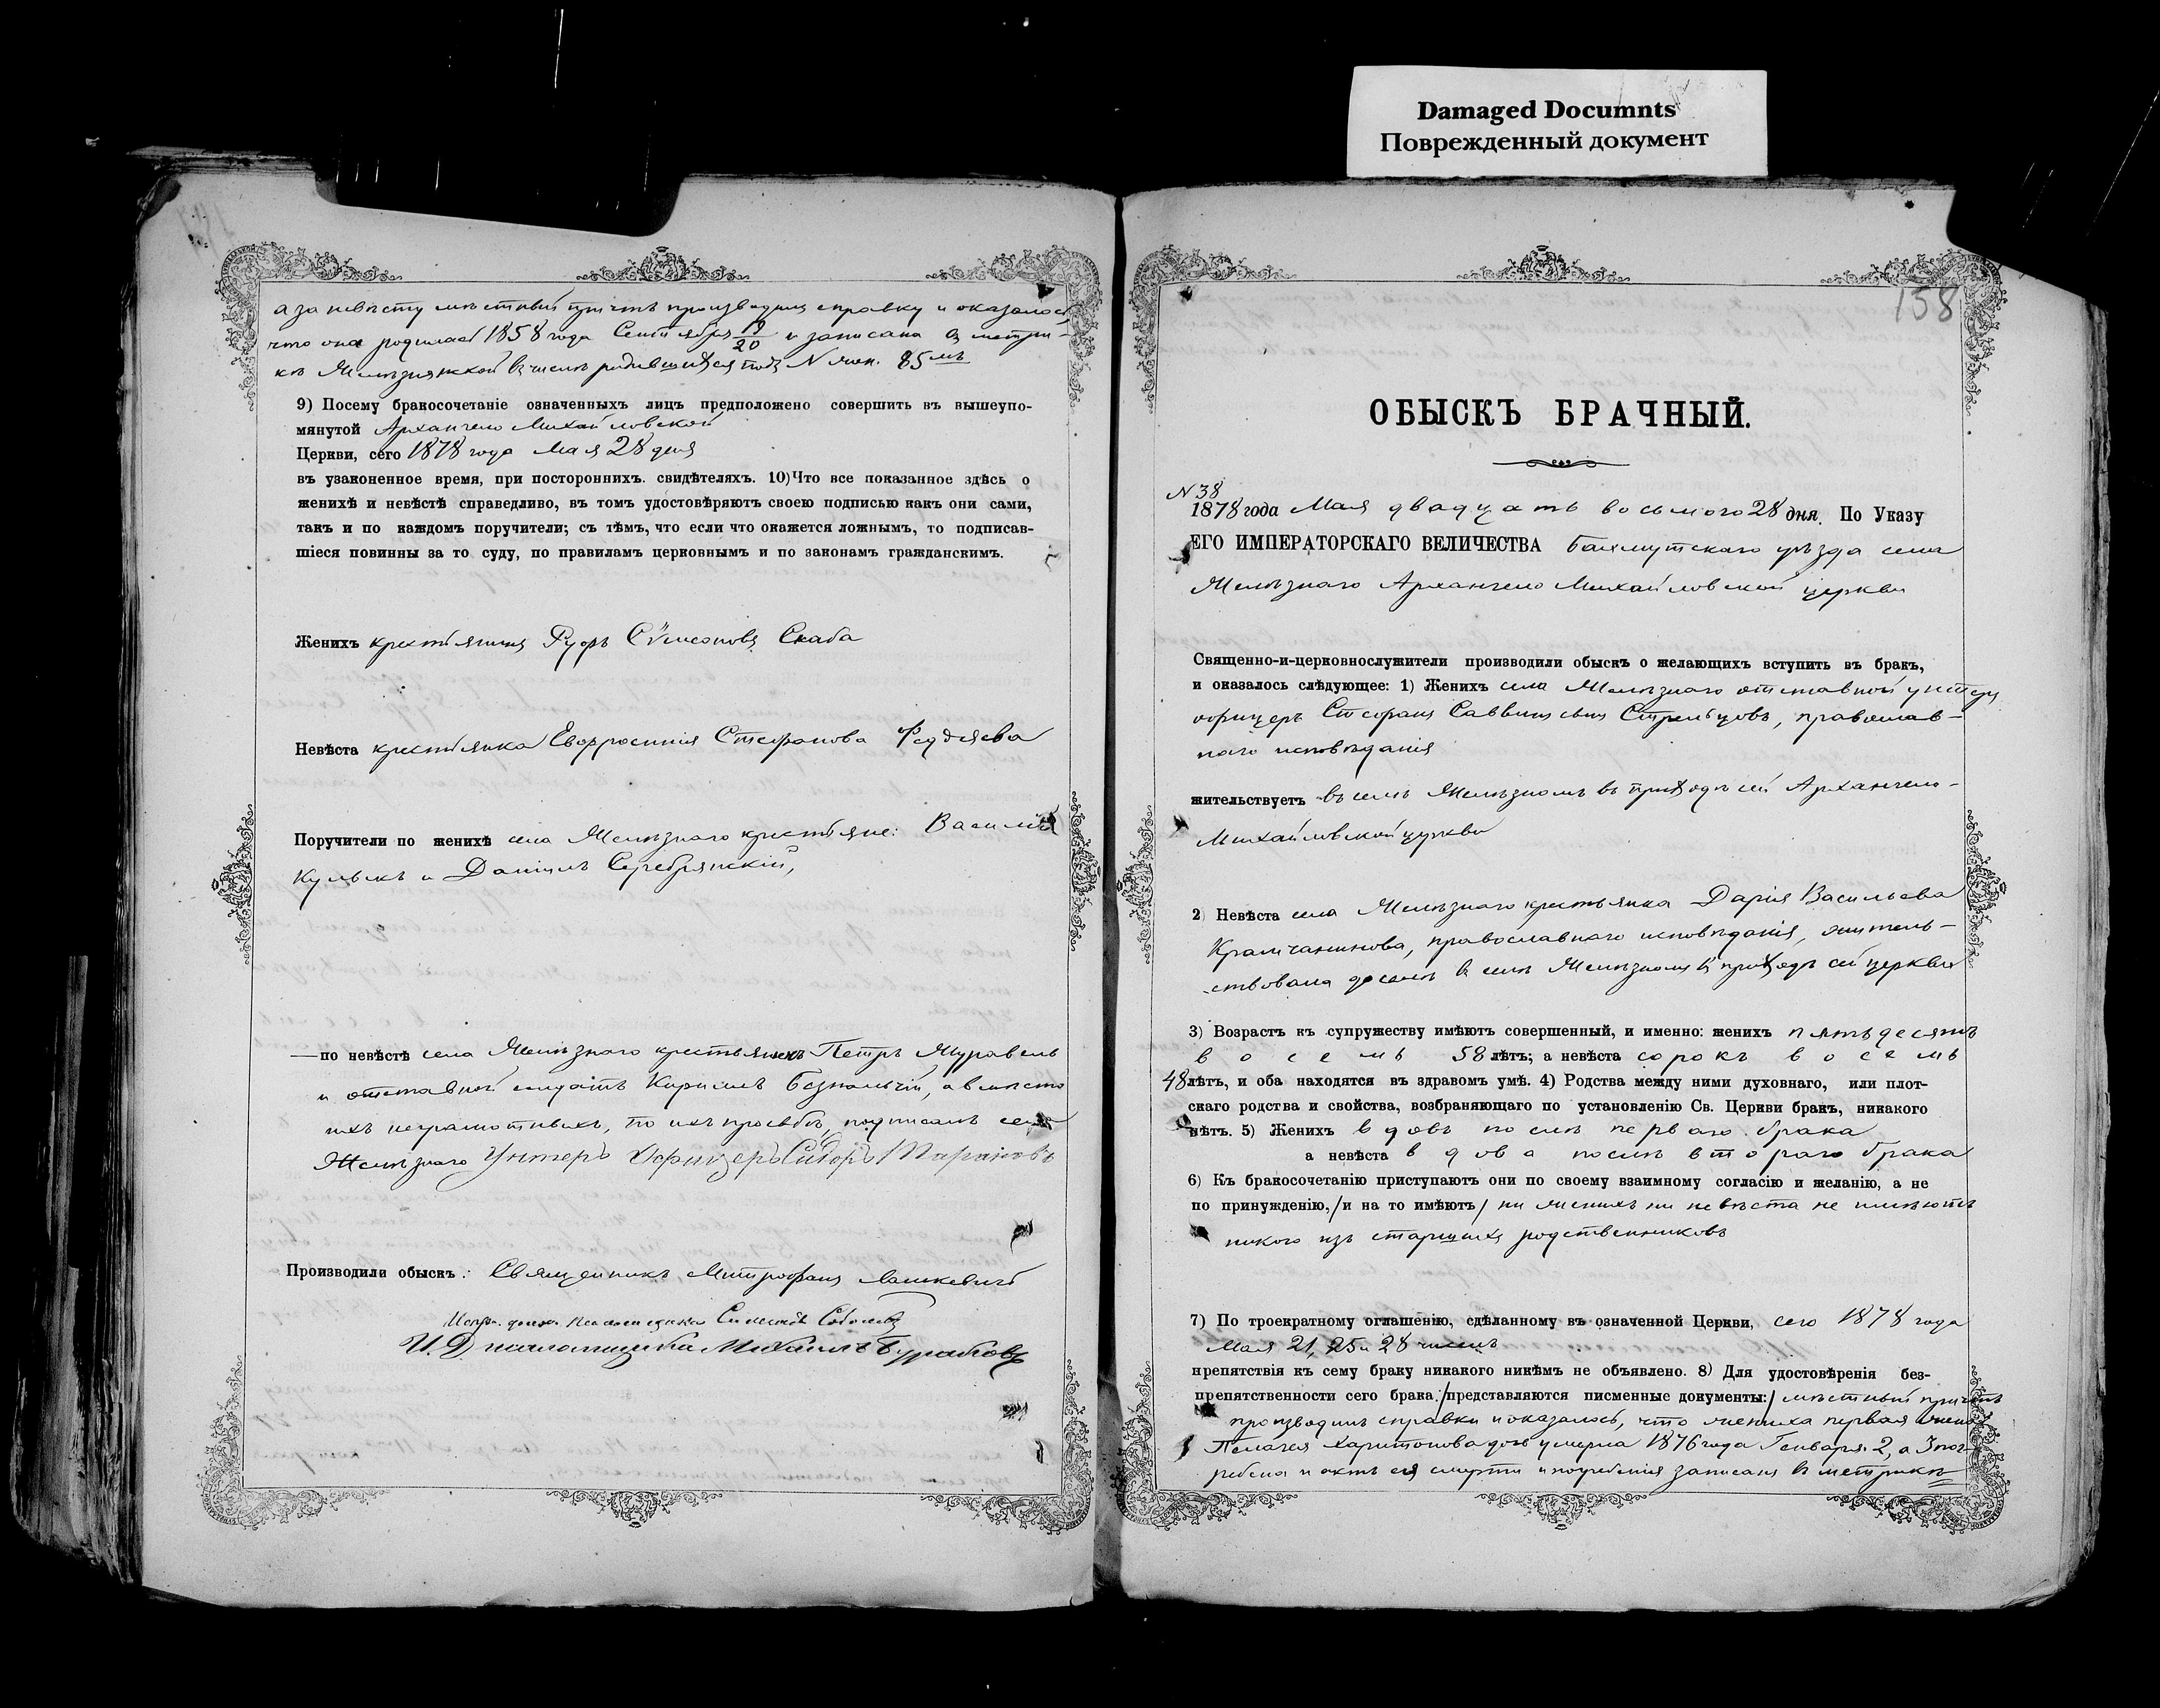 Damaged Documnts
Поврежденный документ
а за невѣсту мѣстный причтъ производилъ справку и оказалось,
что она родилась 1858 года Сентября 19/20 и записана въ метри-
кѣ Желѣзнянской въ числѣ родившихся подъ N жен. 85мъ
9) Посему бракосочетаніе означенныхъ лицъ предположено совершить въ вышеупо-
мянутой Архангело Михайловской
Церкви, сего 1878 года Мая 28 дня
въ узаконенное время, при постороннихъ свидѣтеляхъ. 10) Что все показанное здѣсь о
женихѣ и невѣстѣ справедливо, въ томъ удостовѣряютъ своею подписью какъ они сами,
такъ и по каждомъ поручители; съ тѣмъ, что если что окажется ложнымъ, то подписав-
шіеся повинны за то суду, по правиламъ церковнымъ и по законамъ гражданскимъ.
Женихъ крестьянинъ Сѵмеоновъ Скаба
Невѣста крестьянка Евфросинія Стефанова
Поручители по женихѣ села Желѣзнаго крестьяне: Василій
Кулькъ и Даніилъ Серебрянскій,
— по невѣстѣ села Желѣзнаго крестьянинъ Петръ Журавель
и отставной солдатъ Кириллъ Безпальчій, а вмѣсто
ихъ неграмотныхъ, по ихъ просьбѣ, подписалъ села
Желѣзнаго Унтеръ Офицеръ Сидоръ Тарановъ
Производили обыскъ: Священникъ Митрофанъ Лашкевичъ
Испр. долж. Псаломщика Соболевъ
И. Д. псаломщика Михаилъ Бураковъ
158
ОБЫСКЪ БРАЧНЫЙ.
N 38
1878 года Мая двадцать восьмого 28 дня. По Указу
ЕГО ИМПЕРАТОРСКАГО ВЕЛИЧЕСТВА Бахмутскаго уѣзда села
Желѣзнаго Архангело Михайловской церкви
Священно-и-церковнослужители производили обыскъ о желающихъ вступить въ бракъ,
и оказалось слѣдующее: 1) Женихъ села Желѣзнаго отставной унтеръ
офицеръ Стефанъ Саввинъ сынъ Стрельцовъ, православ-
наго исповѣданія
жительствуетъ въ селѣ Желѣзномъ въ приходѣ сей Архангело-
Михайловской церкви
2) Невѣста села Желѣзнаго крестьянка Дарія Васильева
Крамчанинова, православнаго исповѣданія, житель-
ствовала доселѣ въ селѣ Желѣзномъ въ приходѣ сей церкви
3) Возрастъ къ супружеству имѣютъ совершенный, и именно: женихъ пятьдесятъ
восемь 58 лѣтъ; а невѣста сорокъ восемь
48 лѣтъ, и оба находятся въ здравомъ умѣ. 4) Родства между ними духовнаго, или плот-
скаго родства и свойства, возбраняющаго по установленію Св. Церкви бракъ, никакого
нѣтъ. 5) Женихъ вдовъ послѣ перваго брака
а невѣста вдова послѣ втораго брака
6) Къ бракосочетанію приступаютъ они по своему взаимному согласію и желанію, а не
по принужденію, /и на то имѣютъ/ ни женихъ ни невѣста не имѣютъ
никого изъ старшихъ родственниковъ
7) По троекратному оглашенію, сдѣланному въ означенной Церкви, сего 1878 года
Мая 21, 25 и 28 числъ
препятствія къ сему браку никакого никѣмъ не объявлено. 8) Для удостовѣренія без-
препятственности сего брака: /представляются писменные документы:/ мѣстный причтъ
производилъ справки и оказалось, что жениха первая жена
Пелагея Харитонова дочь умерла 1876 года Генваря 2, а 3 пог-
ребена и актъ ея смерти и погребенія записанъ въ метрикѣ